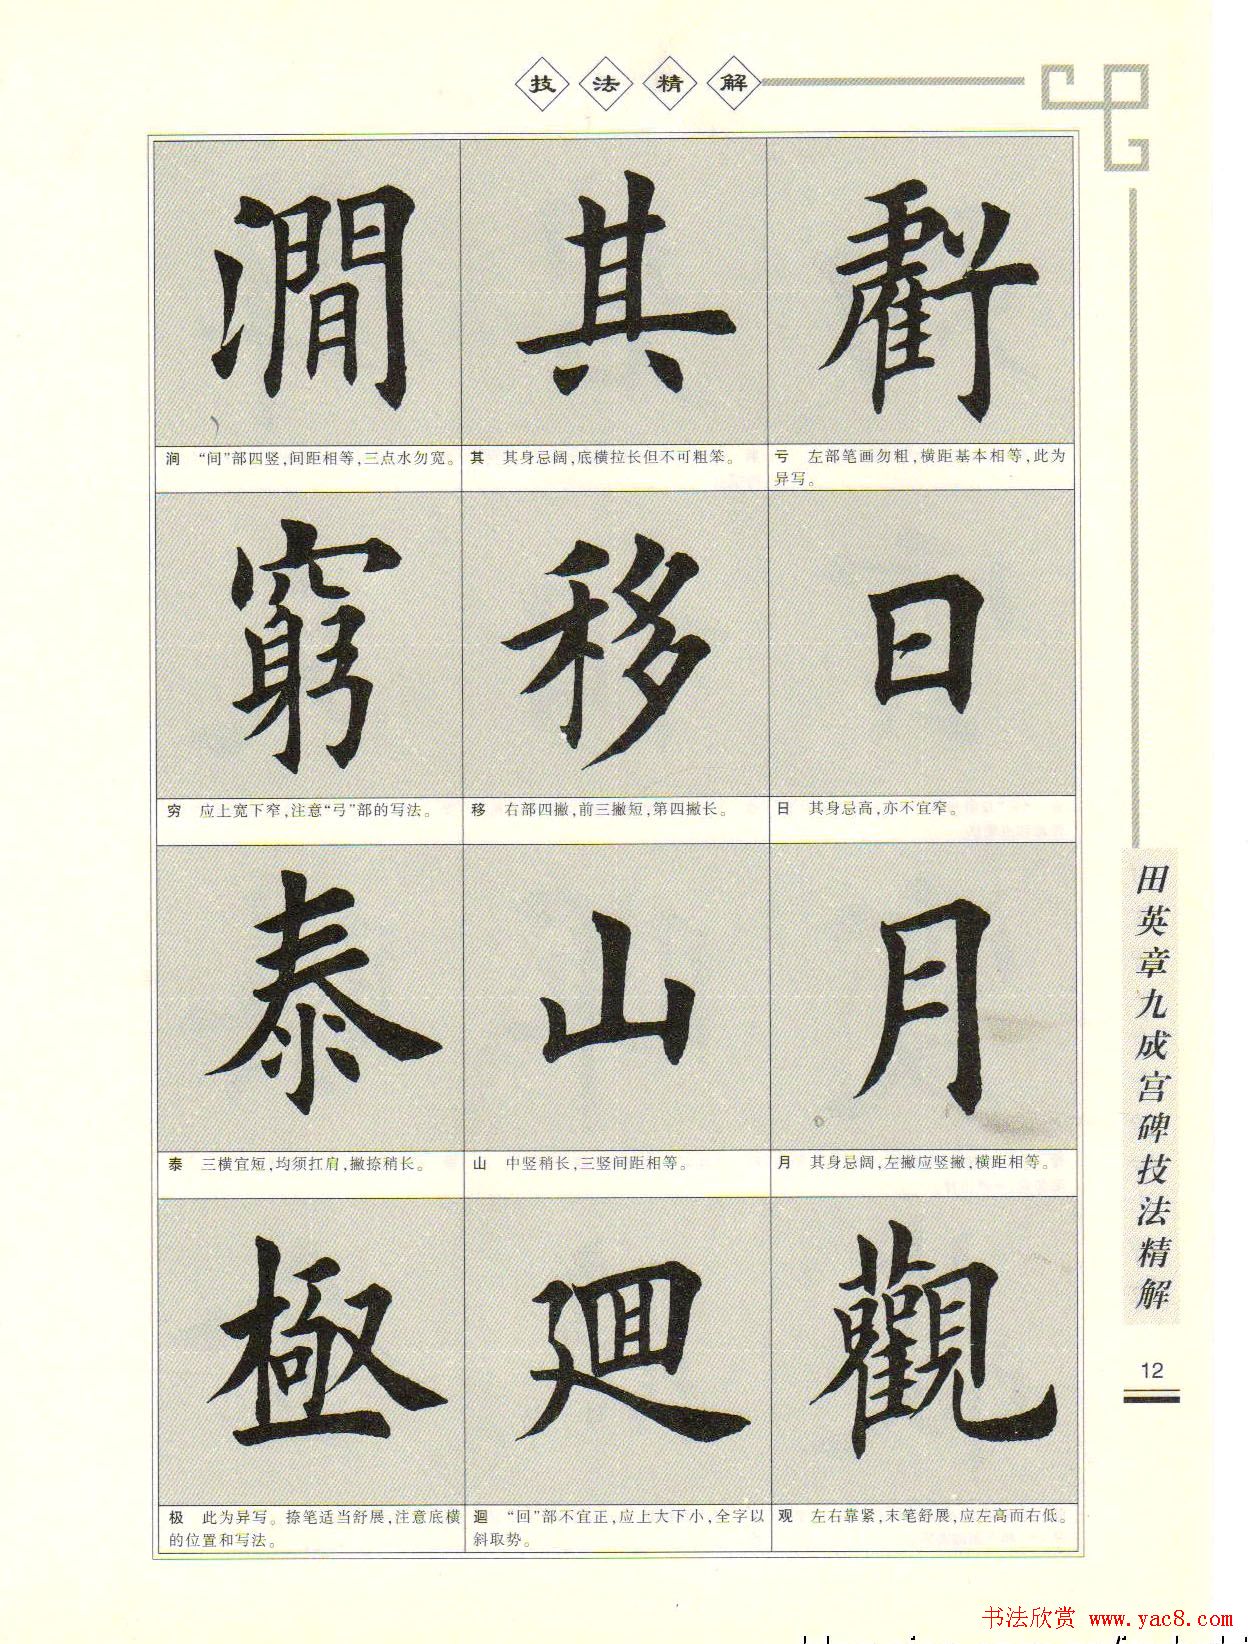 技法精解
澗
其
虧
涧 “间”部四竖,间距相等,三点水勿宽。
其 其身忌阔,底横拉长但不可粗笨。
亏 左部笔画勿粗,横距基本相等,此为
异写。
窮
移
日
穷 应上宽下窄,注意“弓”部的写法。
移 右部四撇,前三撇短,第四撇长。
日 其身忌高,亦不宜窄。
泰
山
月
泰 三横宜短,均须扛肩,撇捺稍长。
山 中竖稍长,三竖间距相等。
月 其身忌阔,左撇应竖撇,横距相等。
極
迴
觀
极 此为异写。捺笔适当舒展,注意底横
的位置和写法。
迴 “回”部不宜正,应上大下小,全字以
斜取势。
观 左右靠紧,末笔舒展,应左高而右低。
田英章九成宫碑技法精解
12
书法欣赏 www.yac8.com